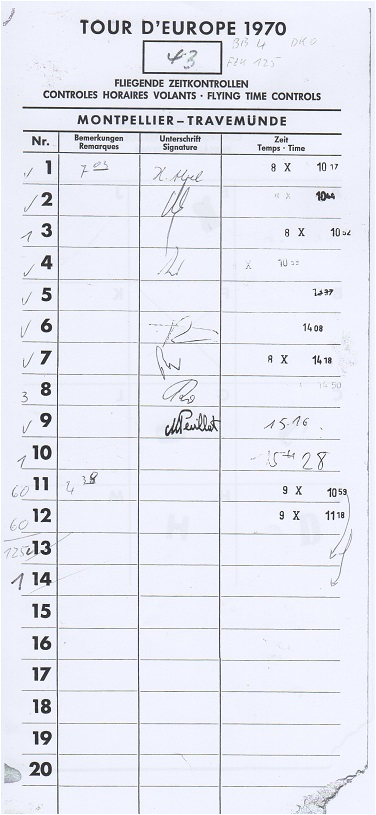 TOUR D'EUROPE 1970
43
BIB 4 OK 0
FZK 125
FLIEGENDE ZEITKONTROLLEN
CONTROLES HORAIRES VOLANTS · FLYING TIME CONTROLS
MONTPELLIER – TRAVEMÜNDE
Nr. Bemerkungen Remarques Unterschrift Signature Zeit Temps · Time
✓ 1 7 03 8 X 10 17
✓ 2 10 44
1 3 8 X 10 52
✓ 4 X
✓ 5
✓ 6 14 08
✓ 7 8 X 14 18
3 8 14 50
✓ 9 15.16.
1 10 15 28
60 11 4 38 9 X 10 59
60 12 9 X 11 18
125 13
1 14
15
16
17
18
19
20